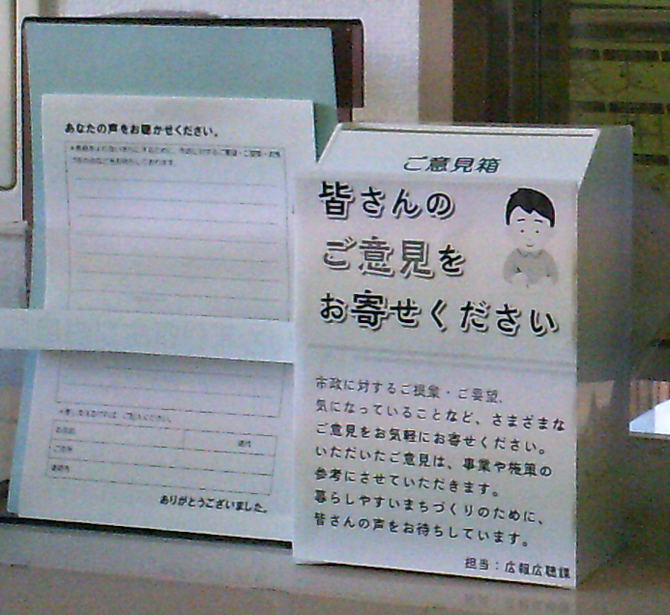 あなたの声をお聴かせください。
ありがとうございました。
ご意見箱
皆さんの
ご意見を
お寄せください
市政に対するご提案・ご要望、
気になっていることなど、さまざまな
ご意見をお気軽にお寄せください。
いただいたご意見は、事業や施策の
参考にさせていただきます。
暮らしやすいまちづくりのために、
皆さんの声をお待ちしています。
担当：広報広聴課